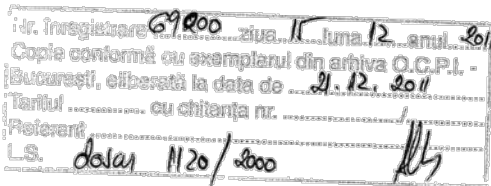 Nr. înregistrare 69800 ziua 15 luna 12 anul 201
Copie conformă cu exemplarul din arhiva O.C.P.I. -
Bucureşti, eliberată la data de 21.12.2011
Tariful ............ cu chitanţa nr. ............/............
Referent
L.S. dosar 1120/2000